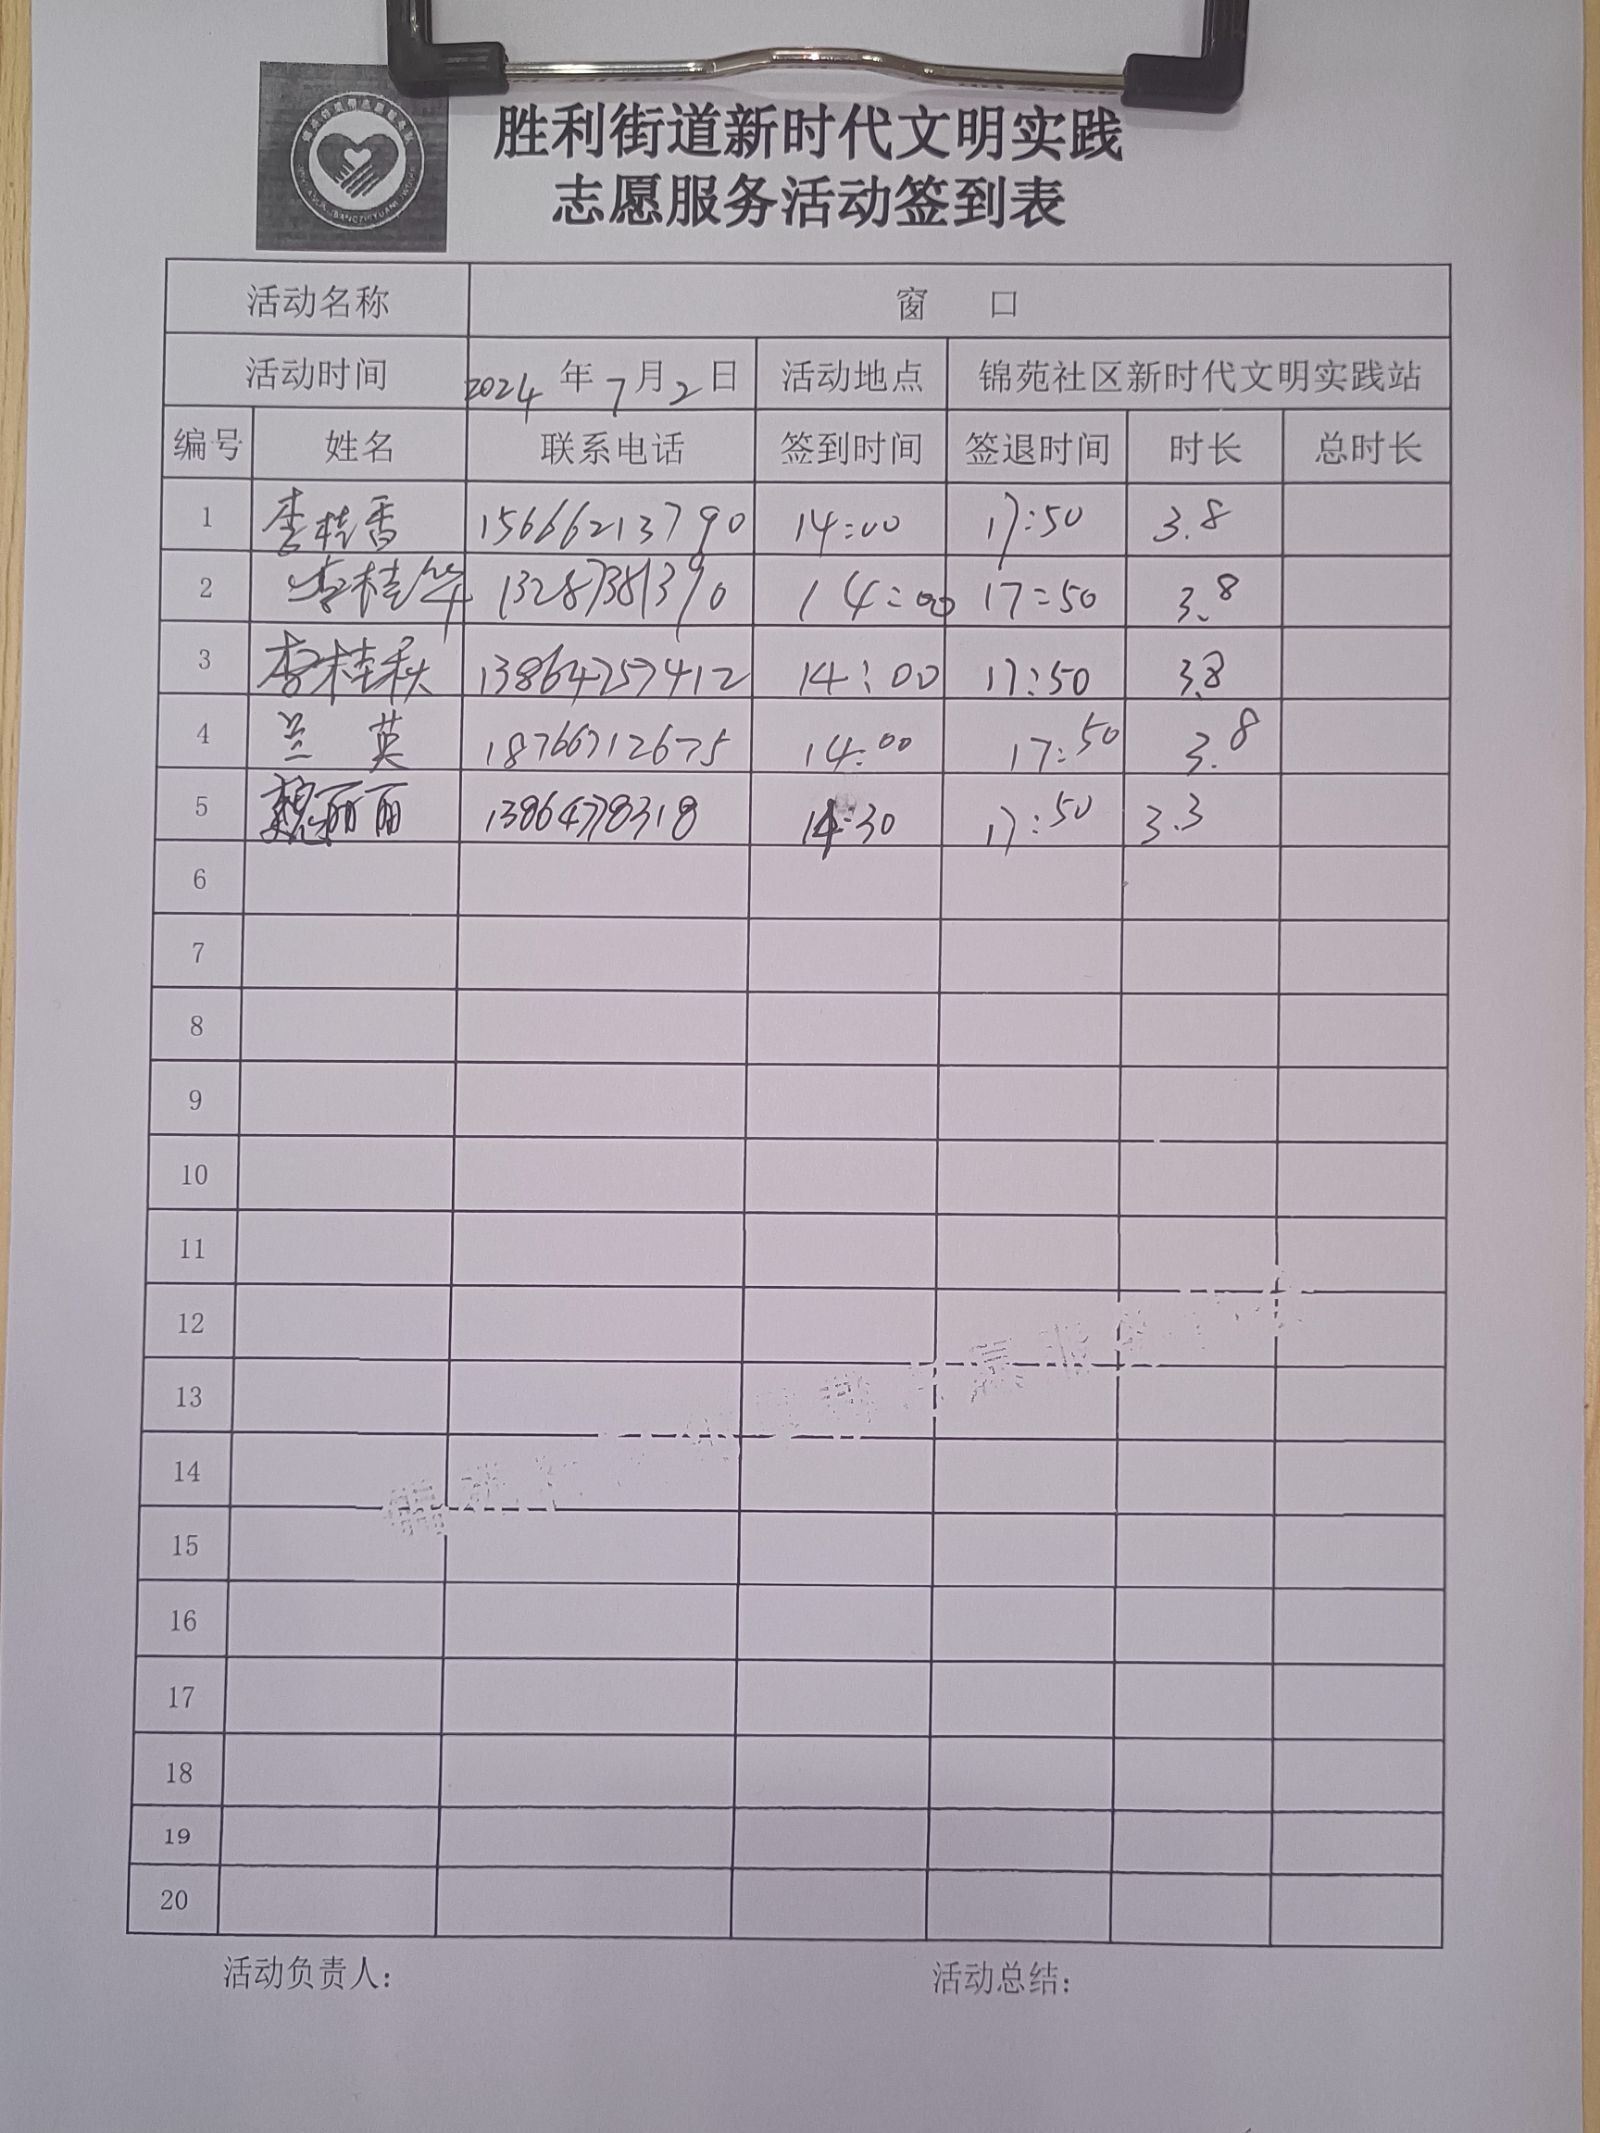 胜利街道新时代文明实践
志愿服务活动签到表
活动名称 窗 口
活动时间 2024年7月2日 活动地点 锦苑社区新时代文明实践站
编号 姓名 联系电话 签到时间 签退时间 时长 总时长
1 李桂香 15666213790 14:00 17:50 3.8
2 李桂华 13287381390 14:00 17:50 3.8
3 李桂秋 13864757412 14:00 17:50 3.8
4 兰英 18766712675 14:00 17:50 3.8
5 魏丽丽 1386478318 14:30 17:50 3.3
6
7
8
9
10
11
12
13
14
15
16
17
18
19
20
活动负责人: 活动总结: